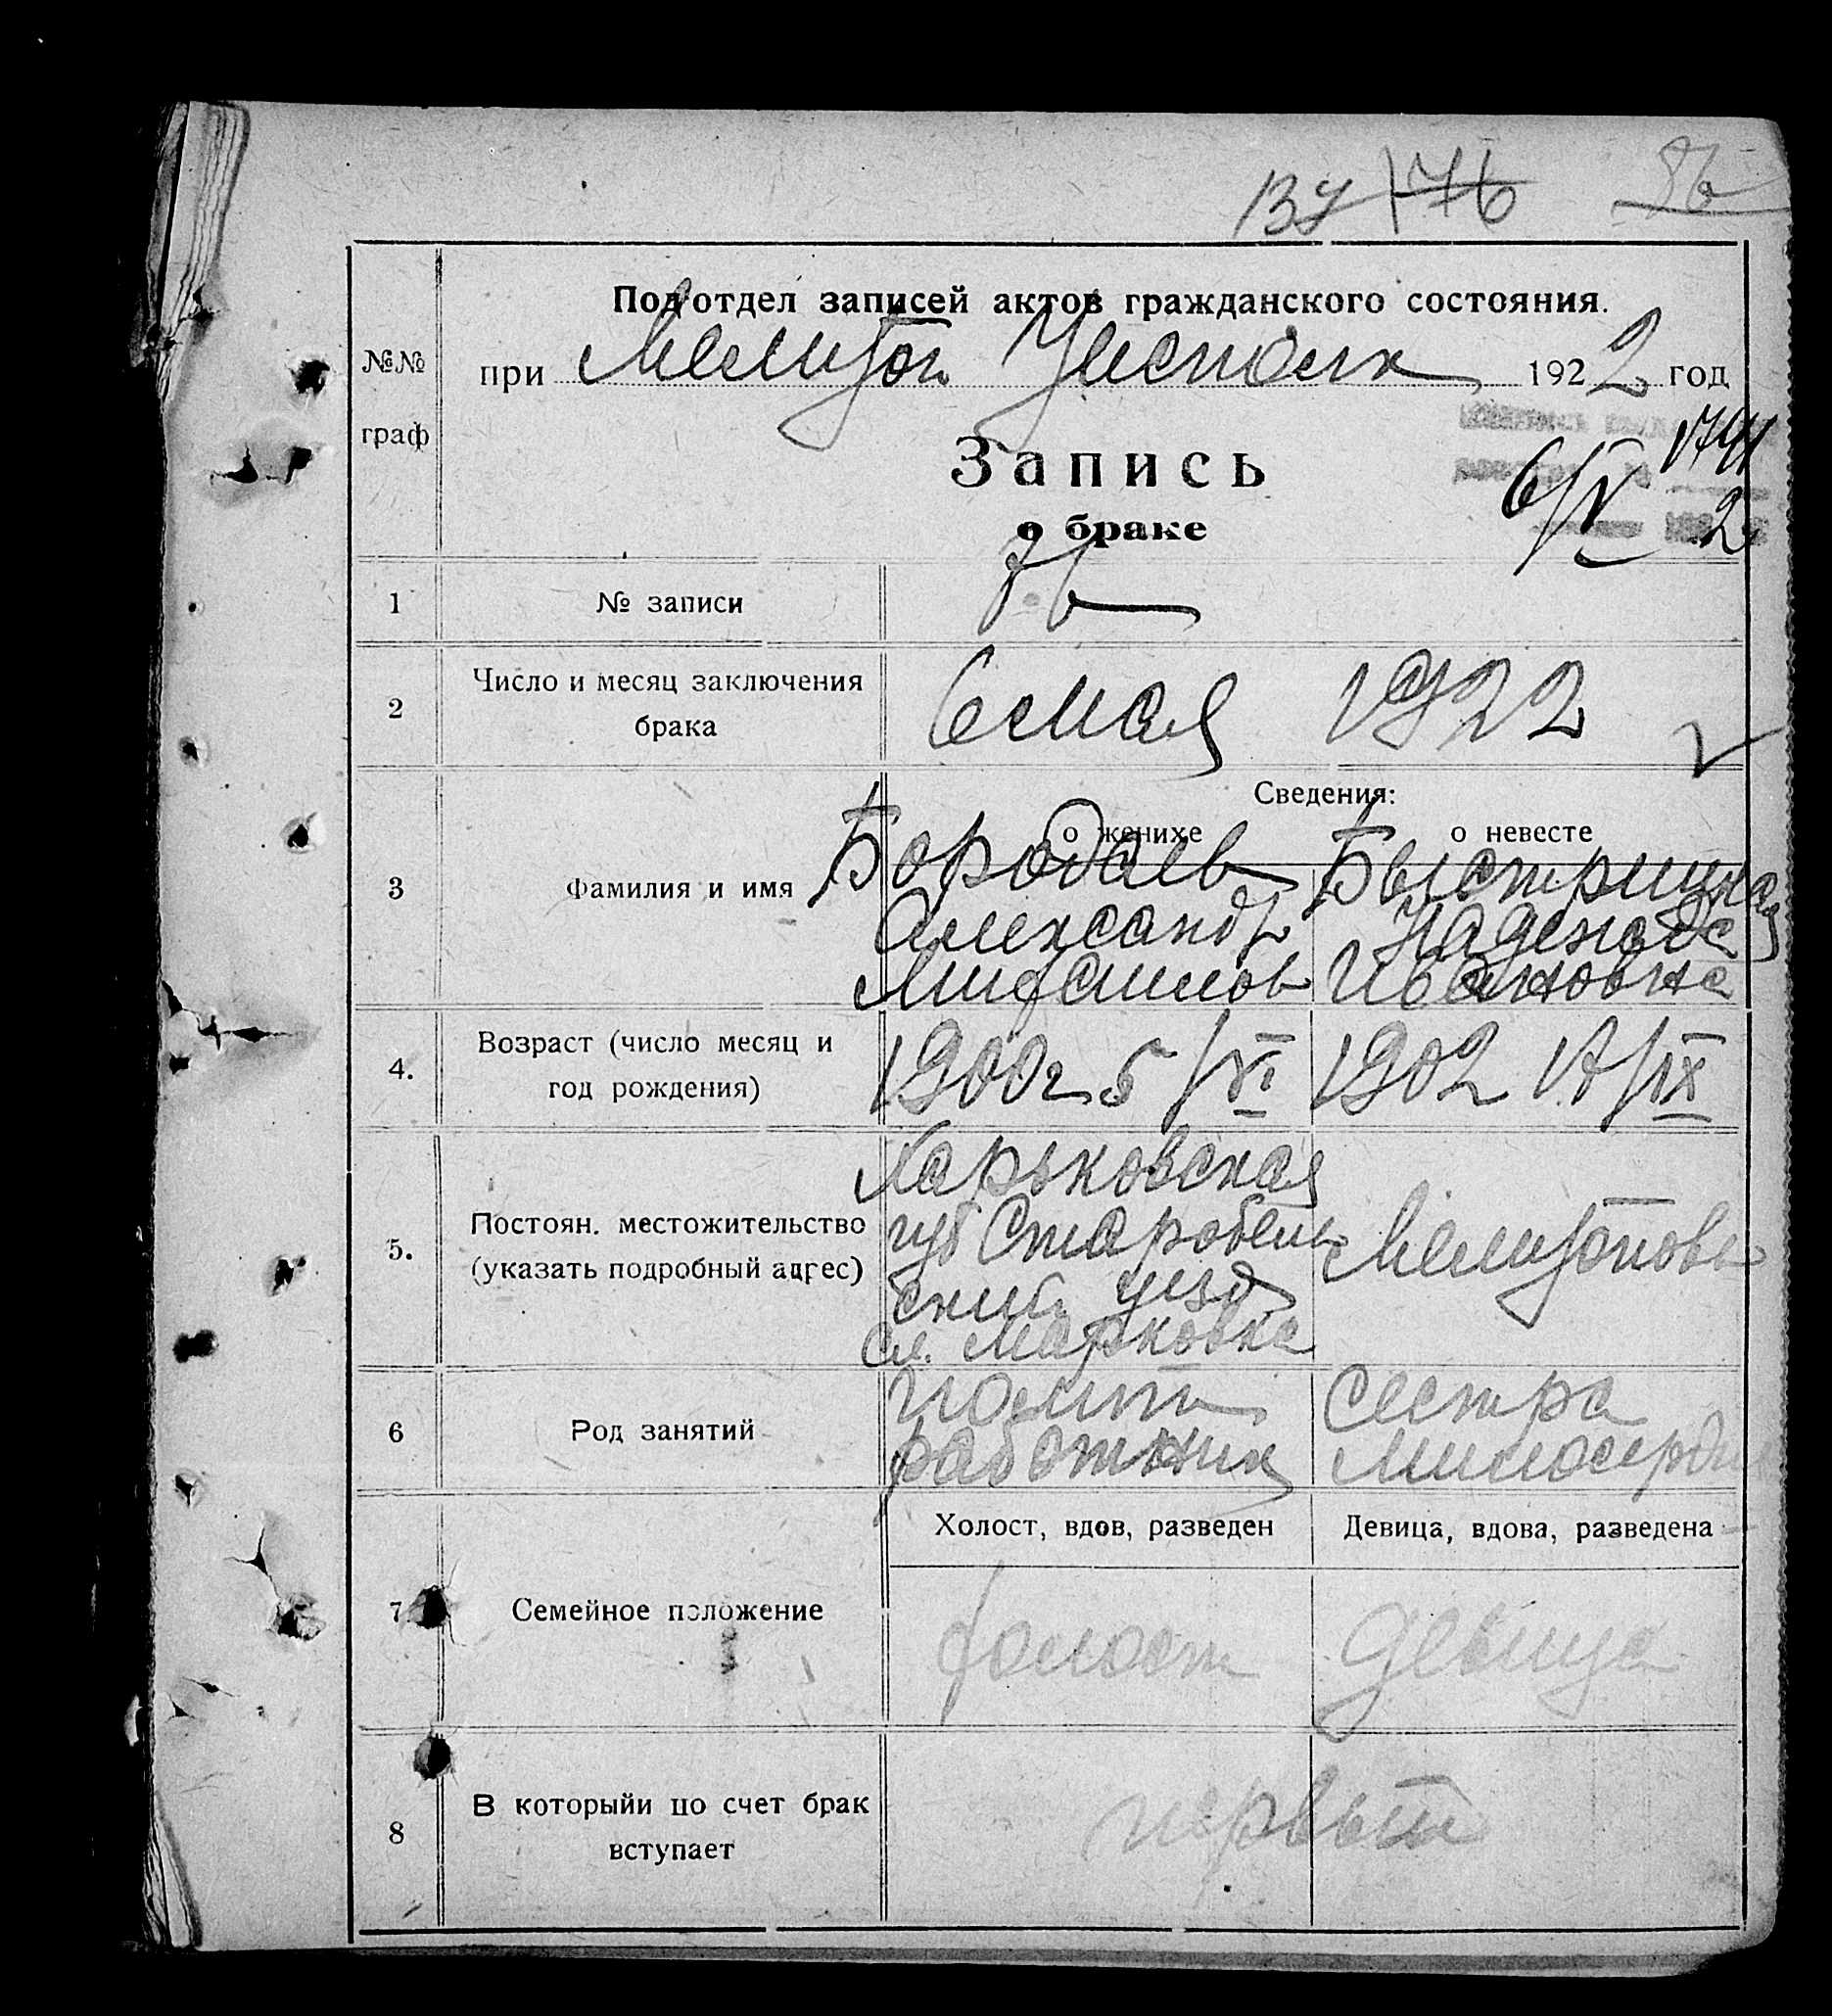 139 176 86
Подотдел записей актов гражданского состояния.
при Мелитоп Уисполк 1922 год
№№
граф
Запись
1741
6/V 2
о браке
1 № записи 76
2 Число и месяц заключения
брака
6 мая 1922
Сведения:
о женихе о невесте
3 Фамилия и имя
Бородаев Быстрицкая
Александр Надежда
Михайлов Ивановна
4. Возраст (число месяц и
год рождения)
1900 г 5/VI 1902 17/IX
5. Постоян. местожительство
(указать подробный адрес)
Харьковская
губ Старобель
ский уезд
сл. Марковка
Мелитополь
6 Род занятий
Полит сестра
работник милосердия
Холост, вдов, разведен Девица, вдова, разведена
7. Семейное положение холост девица
8 В которыйи по счет брак
вступает
первый